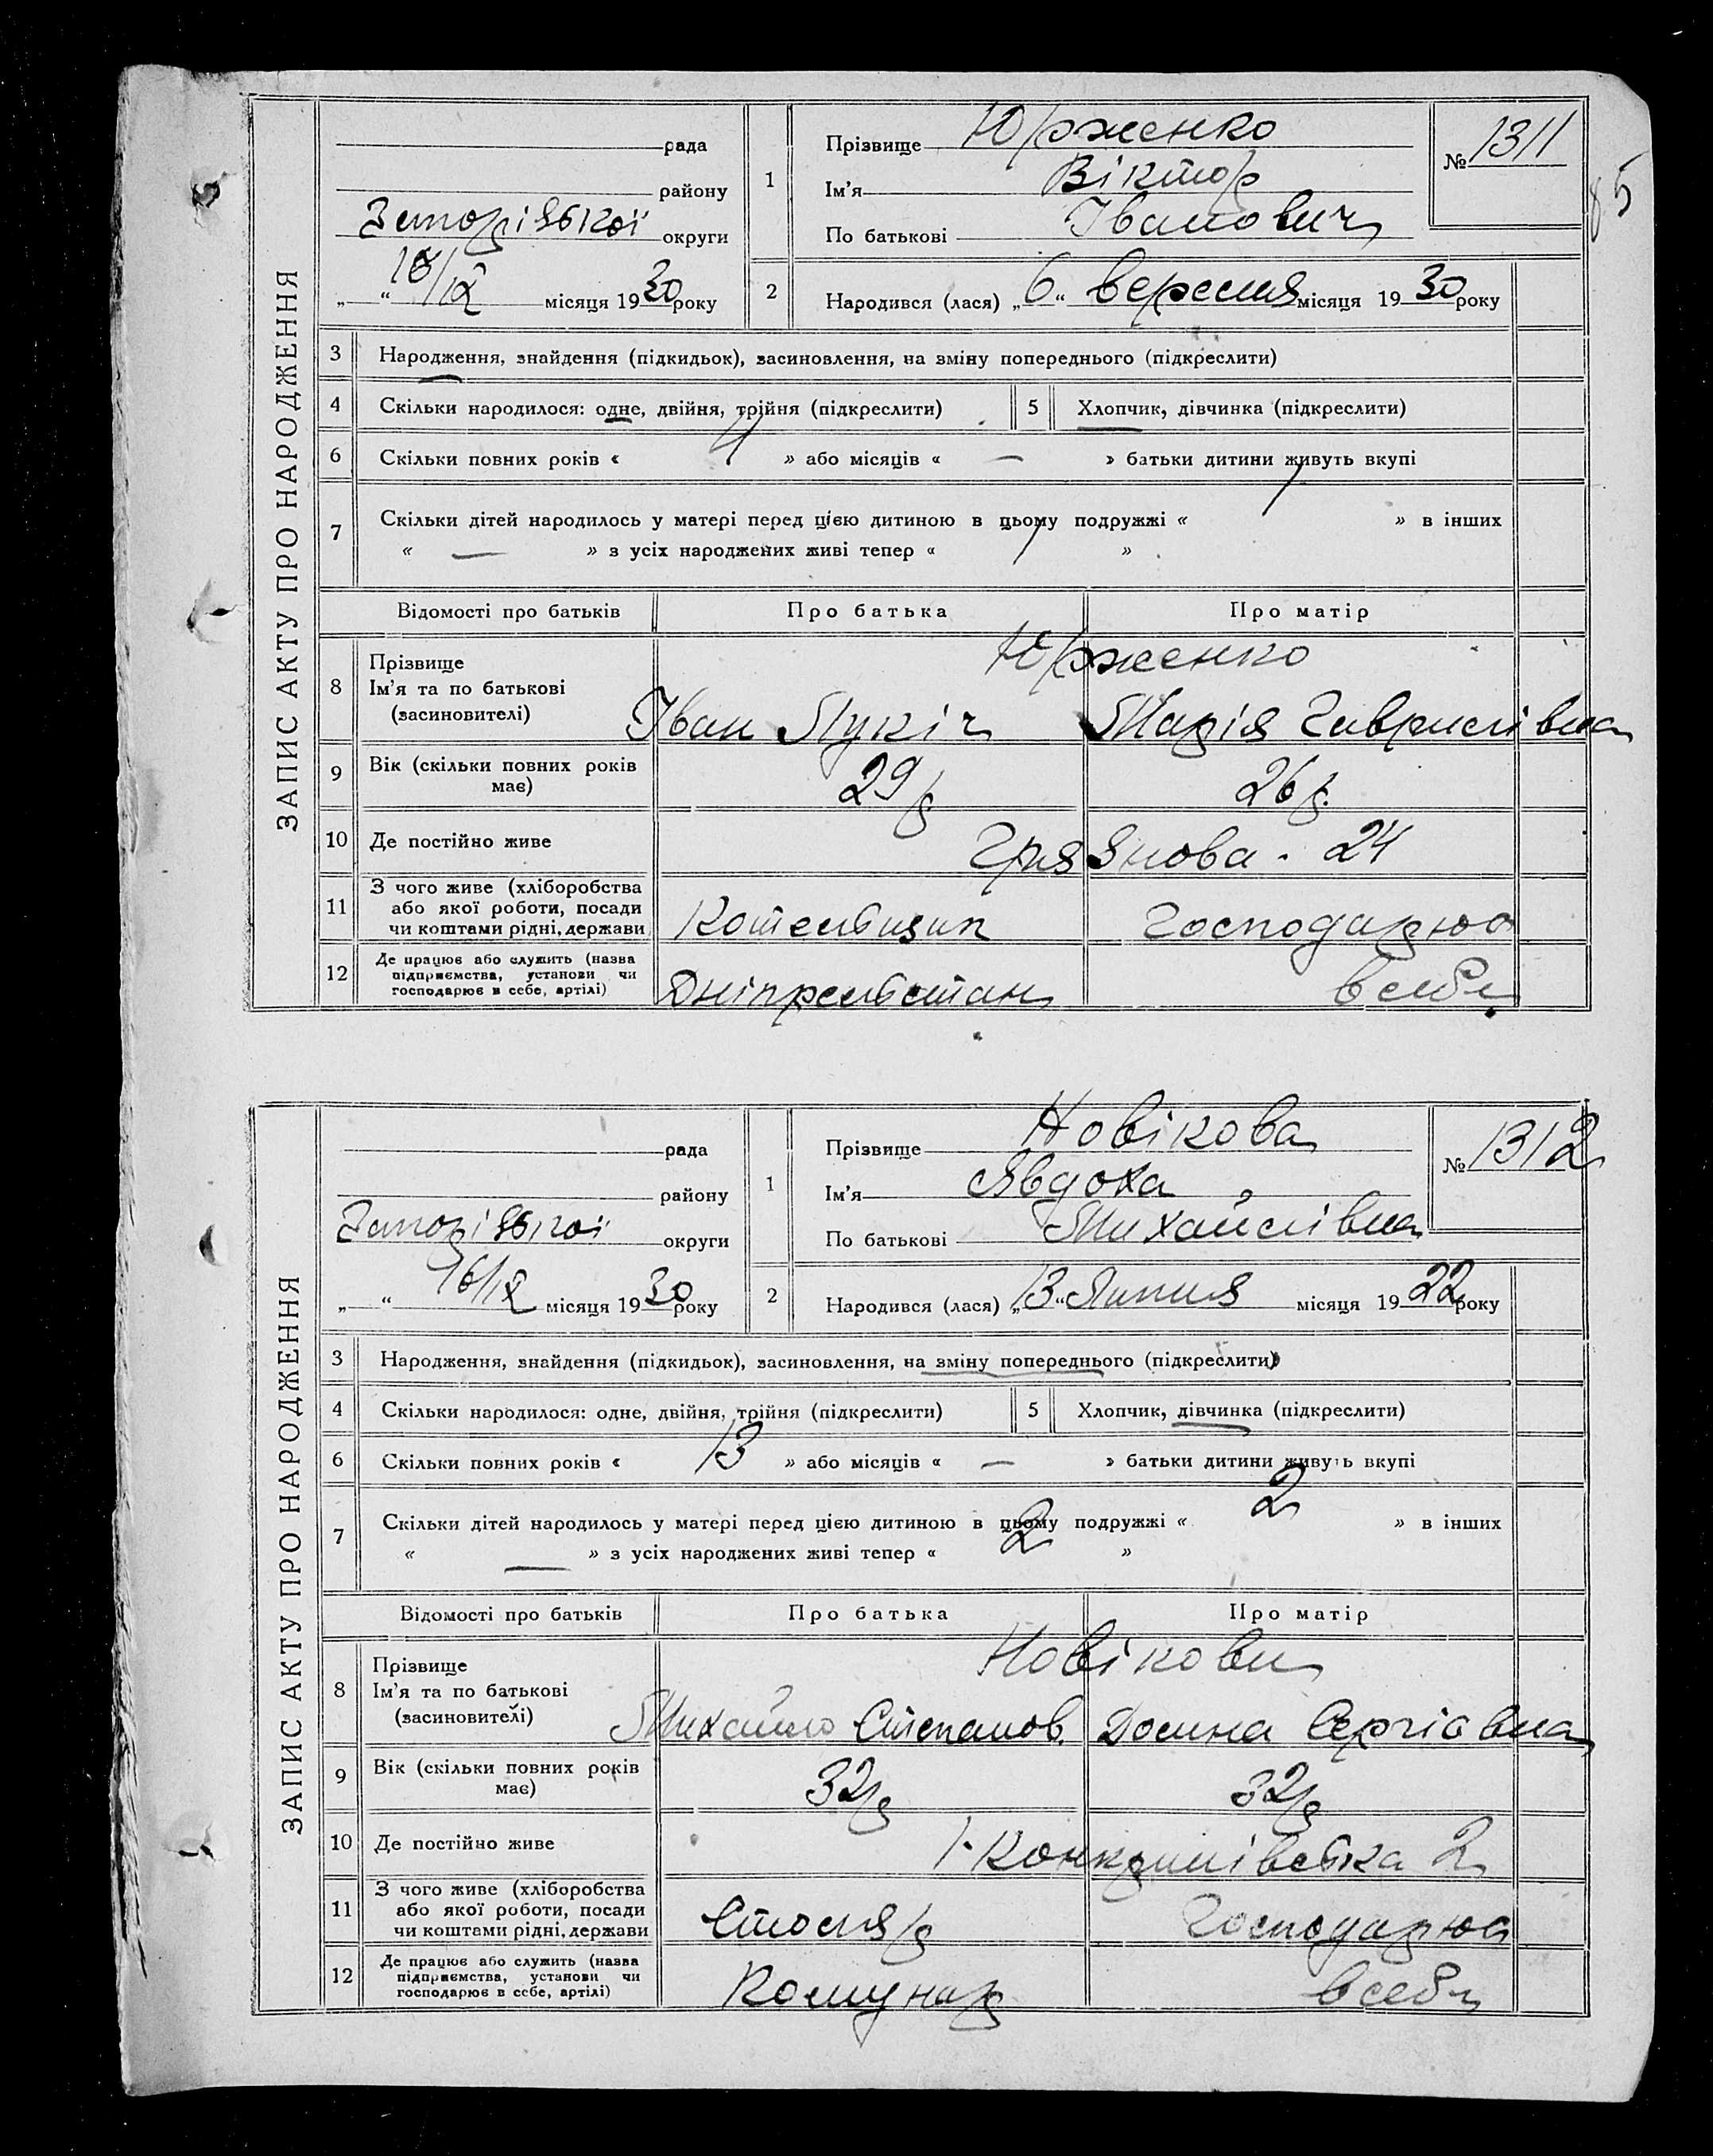 ЗАПИС АКТУ ПРО НАРОДЖЕННЯ
рада
району
Запорізької округи
„ “ 16/IX місяця 1930 року
1
Прізвище Юрженко
Ім’я Віктор
По батькові Іванович
№ 1311
85
2
Народився (лася) „6“ вересня місяця 1930 року
3 Народження, знайдення (підкидьок), засиновлення, на зміну попереднього (підкреслити)
4 Скільки народилося: одне, двійня, трійня (підкреслити)
5 Хлопчик, дівчинка (підкреслити)
6 Скільки повних років « 4 » або місяців « — » батьки дитини живуть вкупі
7 Скільки дітей народилось у матері перед цією дитиною в цьому подружжі « 1 » в інших
« — » з усіх народжених живі тепер « 1 »
Відомості про батьків Про батька Про матір
8 Прізвище
Ім’я та по батькові
(засиновителі)
Юрженко
Іван Лукіч Марія Гаврилівна
9 Вік (скільки повних років
має)
29 р 26 р.
10 Де постійно живе Грязнова . 24
11 З чого живе (хліборобства
або якої роботи, посади
чи коштами рідні, держави
Господарює
12 Де працює або служить (назва
підприємства, установи чи
господарює в себе, артілі)
в себе
ЗАПИС АКТУ ПРО НАРОДЖЕННЯ
рада
району
Запорізької округи
„ “ 16/IX місяця 1930 року
1
Прізвище Новікова
Ім’я Явдоха
По батькові Михайлівна
№ 1312
2
Народився (лася) „13“ Липня місяця 1922 року
3 Народження, знайдення (підкидьок), засиновлення, на зміну попереднього (підкреслити)
4 Скільки народилося: одне, двійня, трійня (підкреслити)
5 Хлопчик, дівчинка (підкреслити)
6 Скільки повних років « 13 » або місяців « — » батьки дитини живуть вкупі
7 Скільки дітей народилось у матері перед цією дитиною в цьому подружжі « 2 » в інших
« — » з усіх народжених живі тепер « 2 »
Відомості про батьків Про батька Про матір
8 Прізвище
Ім’я та по батькові
(засиновителі)
Новікови
Михайло Степанов. Домна Сергієвна
9 Вік (скільки повних років
має)
32 р 32 р
10 Де постійно живе 2
11 З чого живе (хліборобства
або якої роботи, посади
чи коштами рідні, держави
Столяр Господарює
12 Де працює або служить (назва
підприємства, установи чи
господарює в себе, артілі)
Комунар в себе